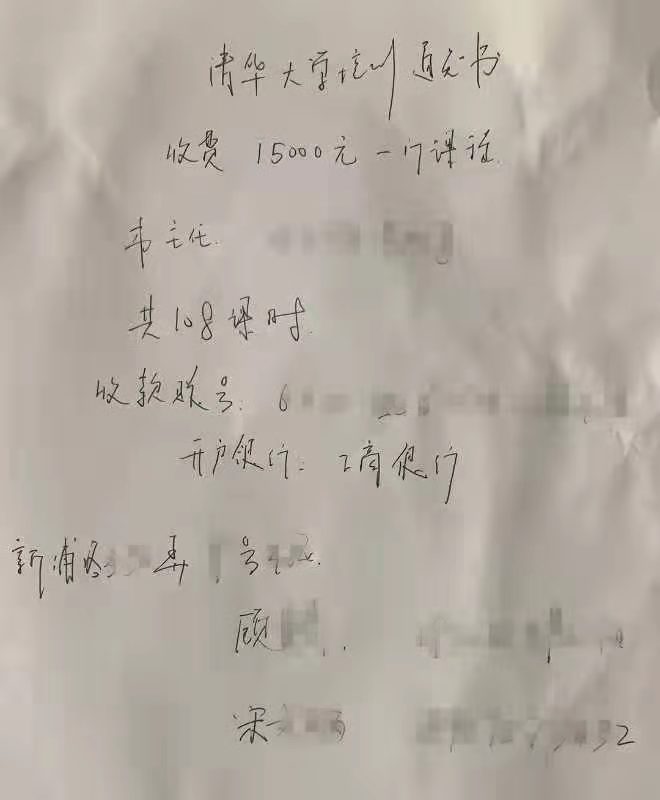 清华大学培训通知书
收费 15000元 一门课程
韦主任.
共108课时.
收款账号: 6
开户银行: 工商银行
新浦路 弄 号
顾
宋 2